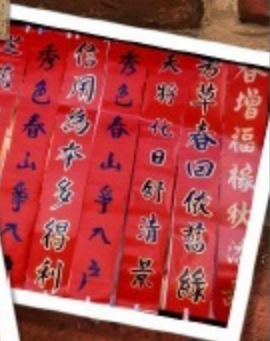 春增福祿秋添
芳草春回依舊綠
天將化日舒清景
秀色春山爭入戶
信用為本多得利
秀色春山爭入